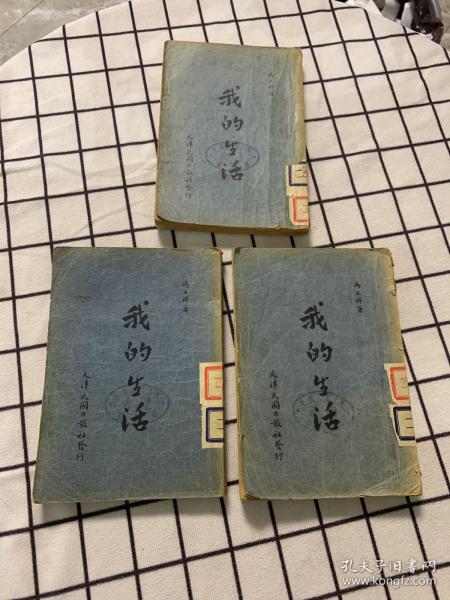 我的生活
天津民國日報社發行
馮玉祥著
我的生活
天津民國日報社發行
馮玉祥著
我的生活
天津民國日報社發行
孔夫子旧书网
www.kongfz.com